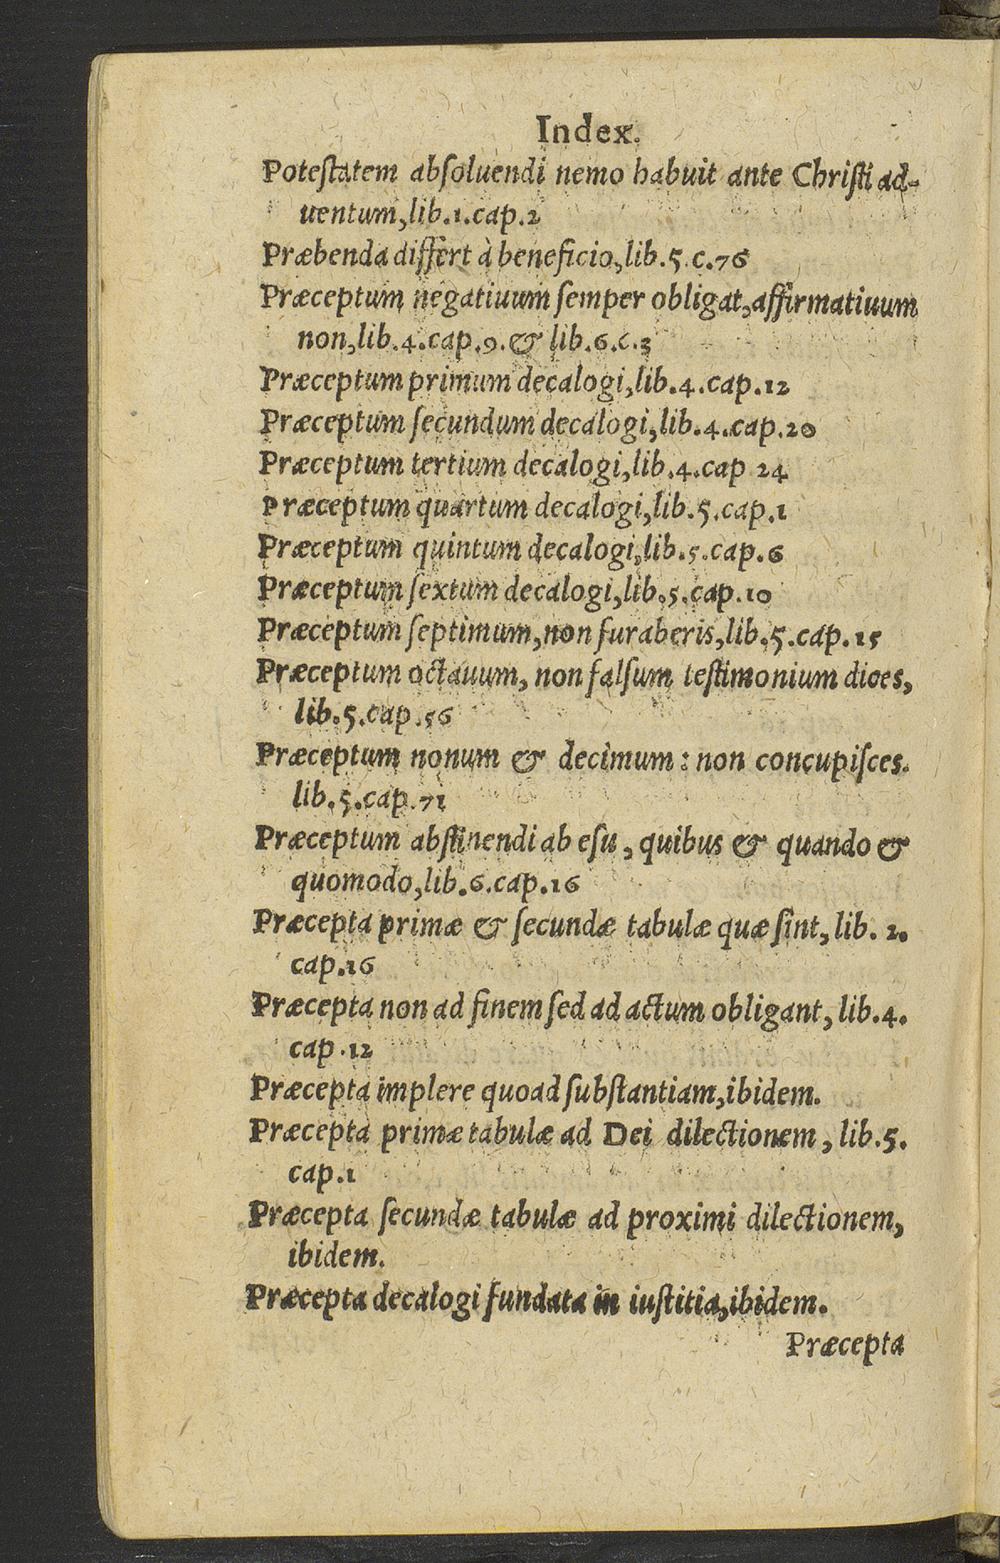 Index.
Poteſtatem abſoluendi nemo habuit ante Chriſti ad-
uentum,lib.1.cap.2
Præbenda differt à beneficio,lib.5.c.76
Præceptum negatiuum ſemper obligat,affirmatiuum
non,lib.4.cap.9.& lib.6.c.3
Præceptum primum decalogi,lib.4.cap.12
Præceptum ſecundum decalogi,lib.4.cap.20
Præceptum tertium decalogi,lib.4.cap 24
Præceptum quartum decalogi,lib.5.cap.1
Præceptum quintum decalogi,lib.5.cap.6
Præceptum ſextum decalogi,lib.5.cap.10
Præceptum ſeptimum,non furaberis,lib.5.cap.15
Præceptum octauum, non falſum teſtimonium dices,
lib.5.cap.56
Præceptum nonum & decimum : non concupiſces.
lib.5.cap.71
Præceptum abſtinendi ab eſu, quibus & quando &
quomodo,lib.6.cap.16
Præcepta primæ & ſecundæ tabulæ quæ ſint, lib. 2.
cap.16
Præcepta non ad finem ſed ad actum obligant, lib.4.
cap.12
Præcepta implere quoad ſubſtantiam,ibidem.
Præcepta primæ tabulæ ad Dei dilectionem, lib.5.
cap.1
Præcepta ſecundæ tabulæ ad proximi dilectionem,
ibidem.
Præcepta decalogi fundata in iuſtitia,ibidem.
Præcepta